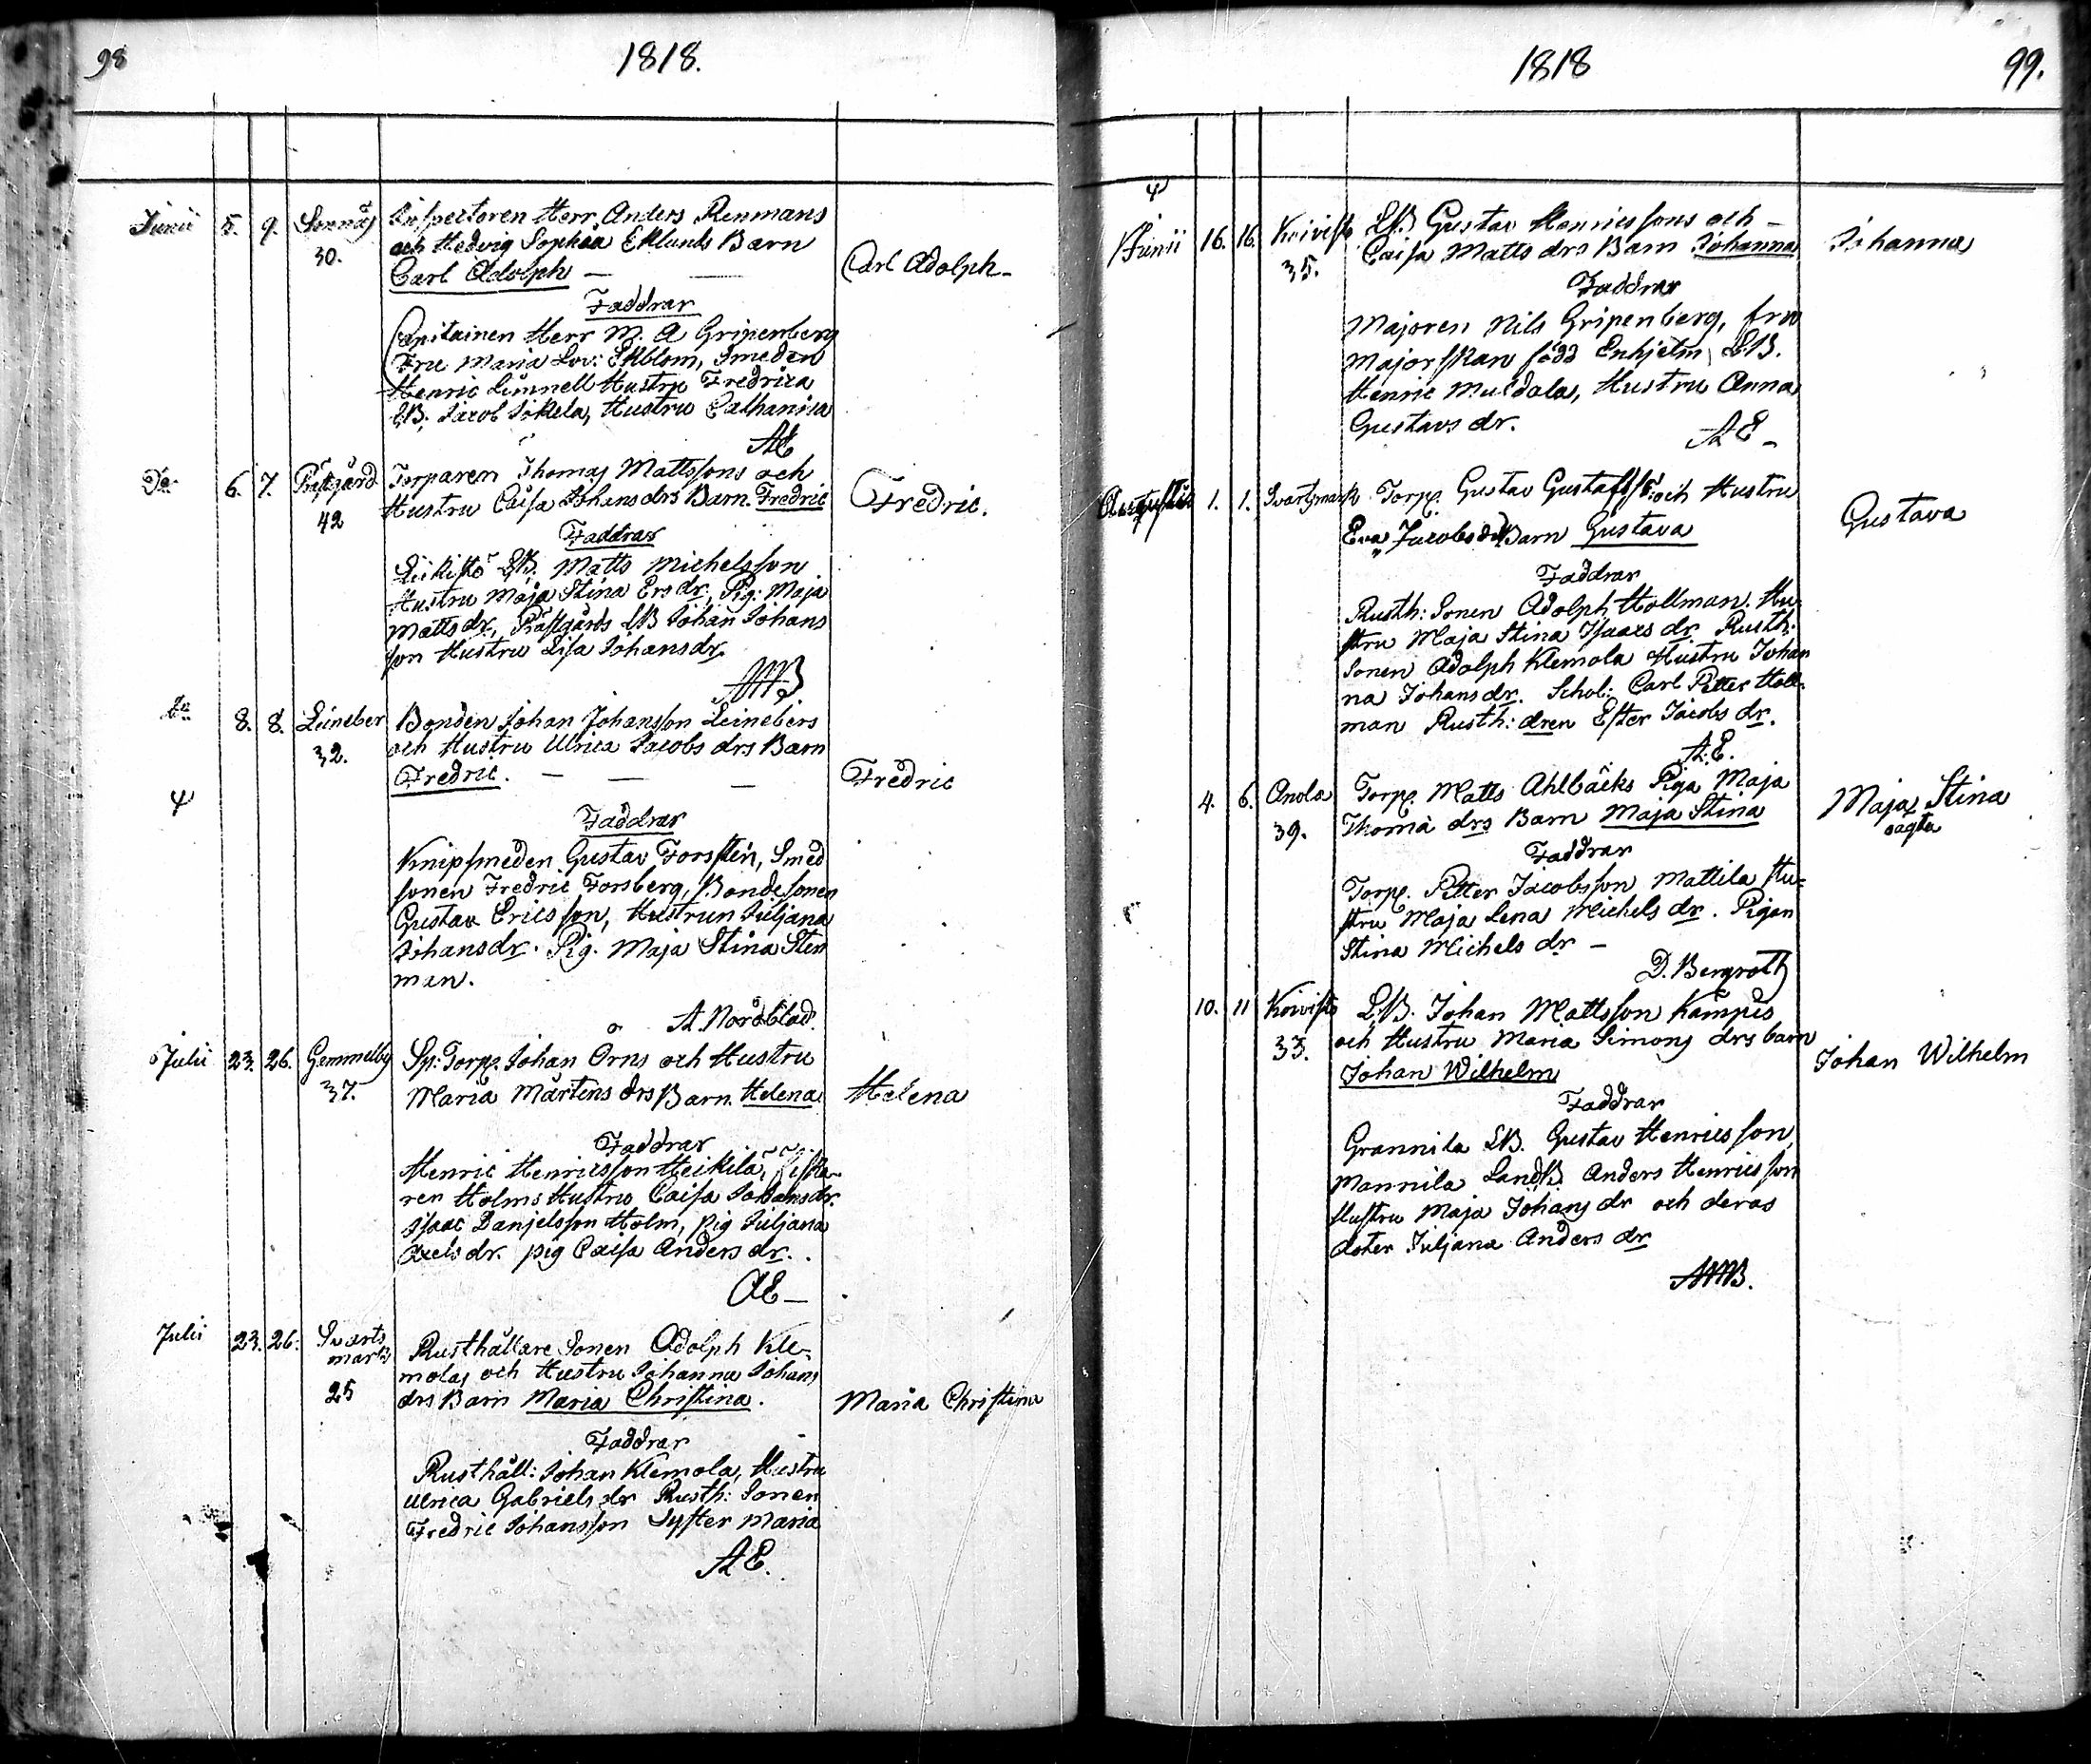 98
1818.
Junii 5. 9. Sonnäs Inspectoren Herr Anders Renmans
30. och Hedvig Sophia Eklunds Barn
Carl Adolph — Carl Adolph
Faddrar
Capitainen Herr M. A Gripenberg
Fru Maria Lov: Ekblom, Smeden
Henric Limnell Hustru Fredrica
LB. Jacob Sokela, Hustru Catharina
AE
Do 6. 7. Prästgård Torparen Thomas Mattssons och
42 Hustru Caisa Johans drs Barn. Fredric Fredric.
Faddrar
LB. Matts Michelsson
Hustru Maja Stina Ers dr. Pig: Maja
Matts dr, Prästgårds LB Johan Johans
son Hustru Lisa Johans dr.
AMB
Do 8. 8. Leineber Bonden Johan Johansson Leinebers
32. och Hustru Ulrica Jacobs drs Barn
Fredric. — — — Fredric
Faddrar
Knipsmeden Gustav Forstén, Smed
sonen Fredric Forsberg, Bondesonen
Gustav Ericsson, Hustrun Juljana
Johansdr. Pig. Maja Stina Sten
man.
A. Nordblad.
Julii 23. 26. Gemmelby Sp: Torp. Johan Orns och Hustru
37. Maria Mårtens drs Barn. Helena Helena
Faddrar
Henric Henricsson Heikila, Fiska
ren Holms Hustru Caisa Johansdr.
Isaac Danjelsson Holm, pig Juljana
Axels dr. pig Caisa Anders dr.
AE —
Julii 23. 26. Svarts Rusthållare Sonen Adolph Kle-
mark molas och Hustru Johanna Johans
25 drs Barn Maria Christina. Maria Christina
Faddrar
Rusthåll: Johan Klemola, Hustru
Ulrica Gabriels dr Rusth: Sonen
Fredric Johansson Syster Maria
AE.
1818
99.
Junii 16. 16. Koivisto LB Gustav Henricssons och —
35. Caisa Matts drs Barn Johanna Johanna
Faddrar
Majoren Nils Gripenberg, fru
Majorskan född Enhjelm, LB.
Henric Muldala, Hustru Anna
Gustavs dr.
AE —
Augusti 1. 1. Svartsmark Torp. Gustav Gustafss: och Hustru
Eva Jacobs drs Barn Gustava Gustava
Faddrar
Rusth: Sonen Adolph Hollman. Hu-
stru Maja Stina Isaacs dr Rusth:
Sonen Adolph Klemola Hustru Johan
na Johans dr. Schol: Carl Petter Holl-
man Rusth: dren Ester Jacobs dr.
A.E.
4. 6. Anola Torp. Matts Ahlbäcks Piga Maja
39. Thomæ drs Barn Maja Stina Maja Stina
oagta
Faddrar
Torp. Petter Jacobsson Mattila Hu-
stru Maja Lena Michels dr. Pigan
Stina Michels dr —
D. Bergroth
10. 11 Koivisto LB. Johan Mattsson Kämpis
33. och Hustru Maria Simons drs barn
Johan Wilhelm Johan Wilhelm
Faddrar
Grannila LB. Gustav Henricsson,
Mannila LandB. Anders Henricsson
Hustru Maja Johans dr och deras
doter Juljana Anders dr
AMB.